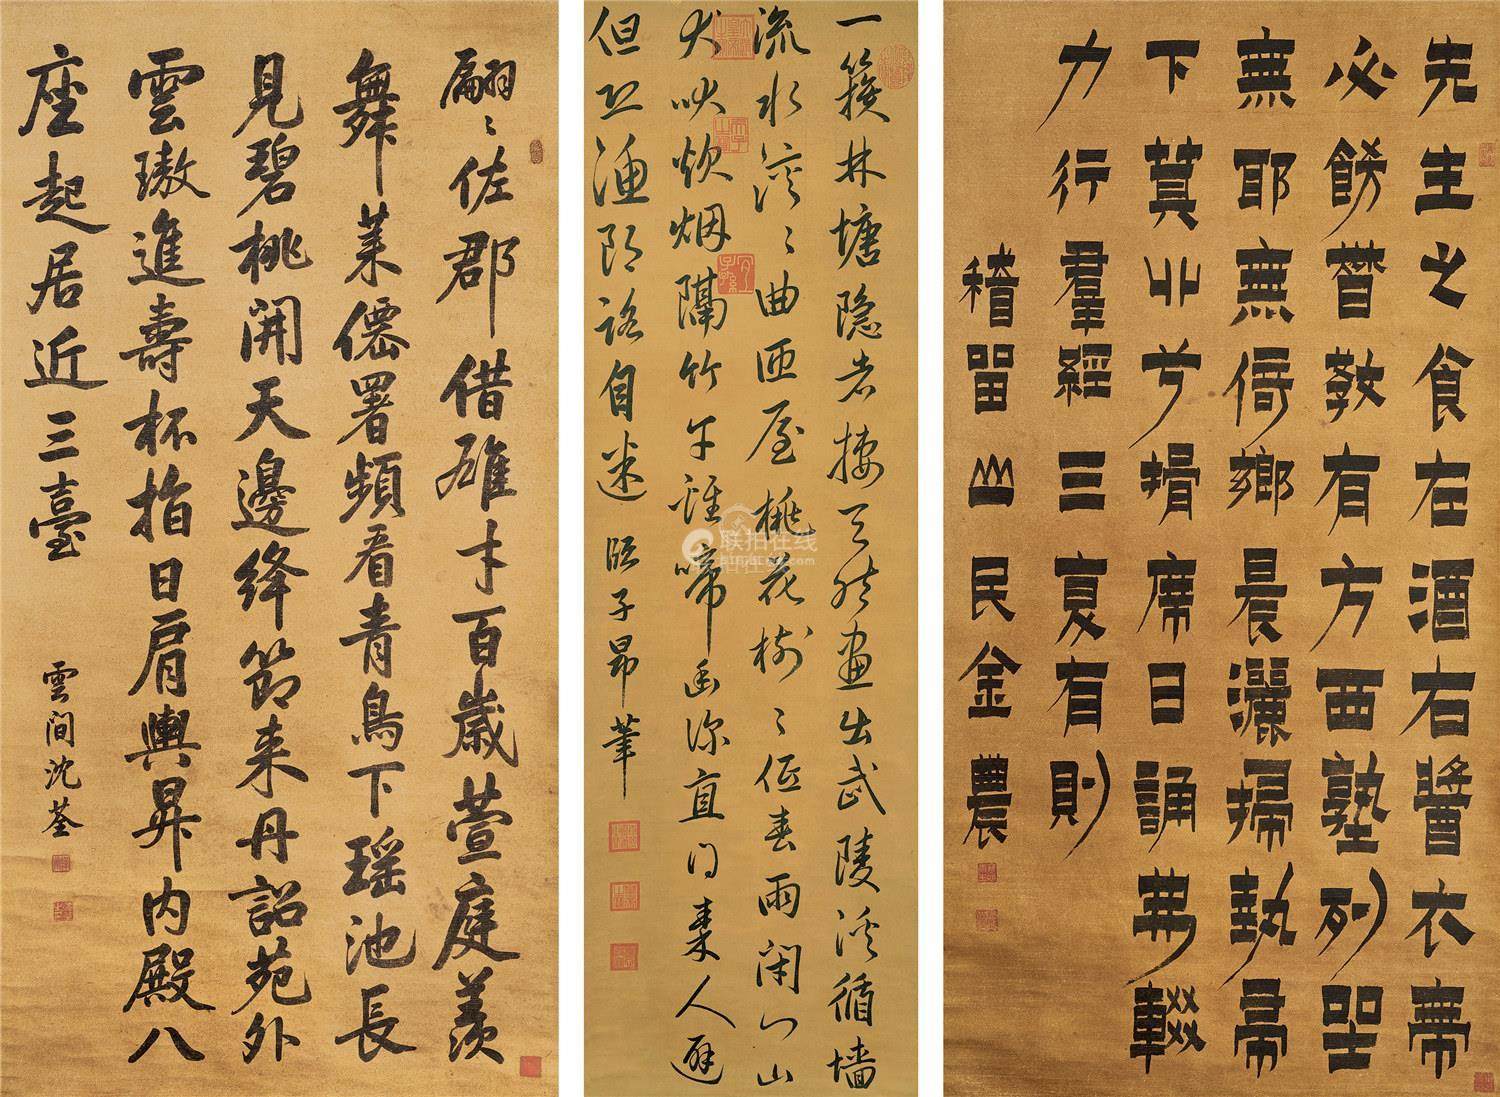 翩々佐郡借雄才百歲萱庭羨
舞萊僊署頻看青鳥下瑤池長
見碧桃開天邊絳節来丹詔苑外
雲璈進壽杯指日肩輿昇内殿八
座起居近三臺
雲間沈荃
一簇林塘隐者棲天然畫出武陵溪循墻
流水溪々曲匝屋桃花樹々低春雨闲門山
犬吠炊烟隔竹午雞啼幽深直同秦人避
但恐漁郎路自迷 臨子昂筆
先生之食左酒右醬衣帶
必飭朁敎有方西塾列㘴
無耶無倚鄉晨灑掃執帚
下莫丱兮揖席日誦弗輟
力行羣經三夏有則
稽留山民金農
联拍在线